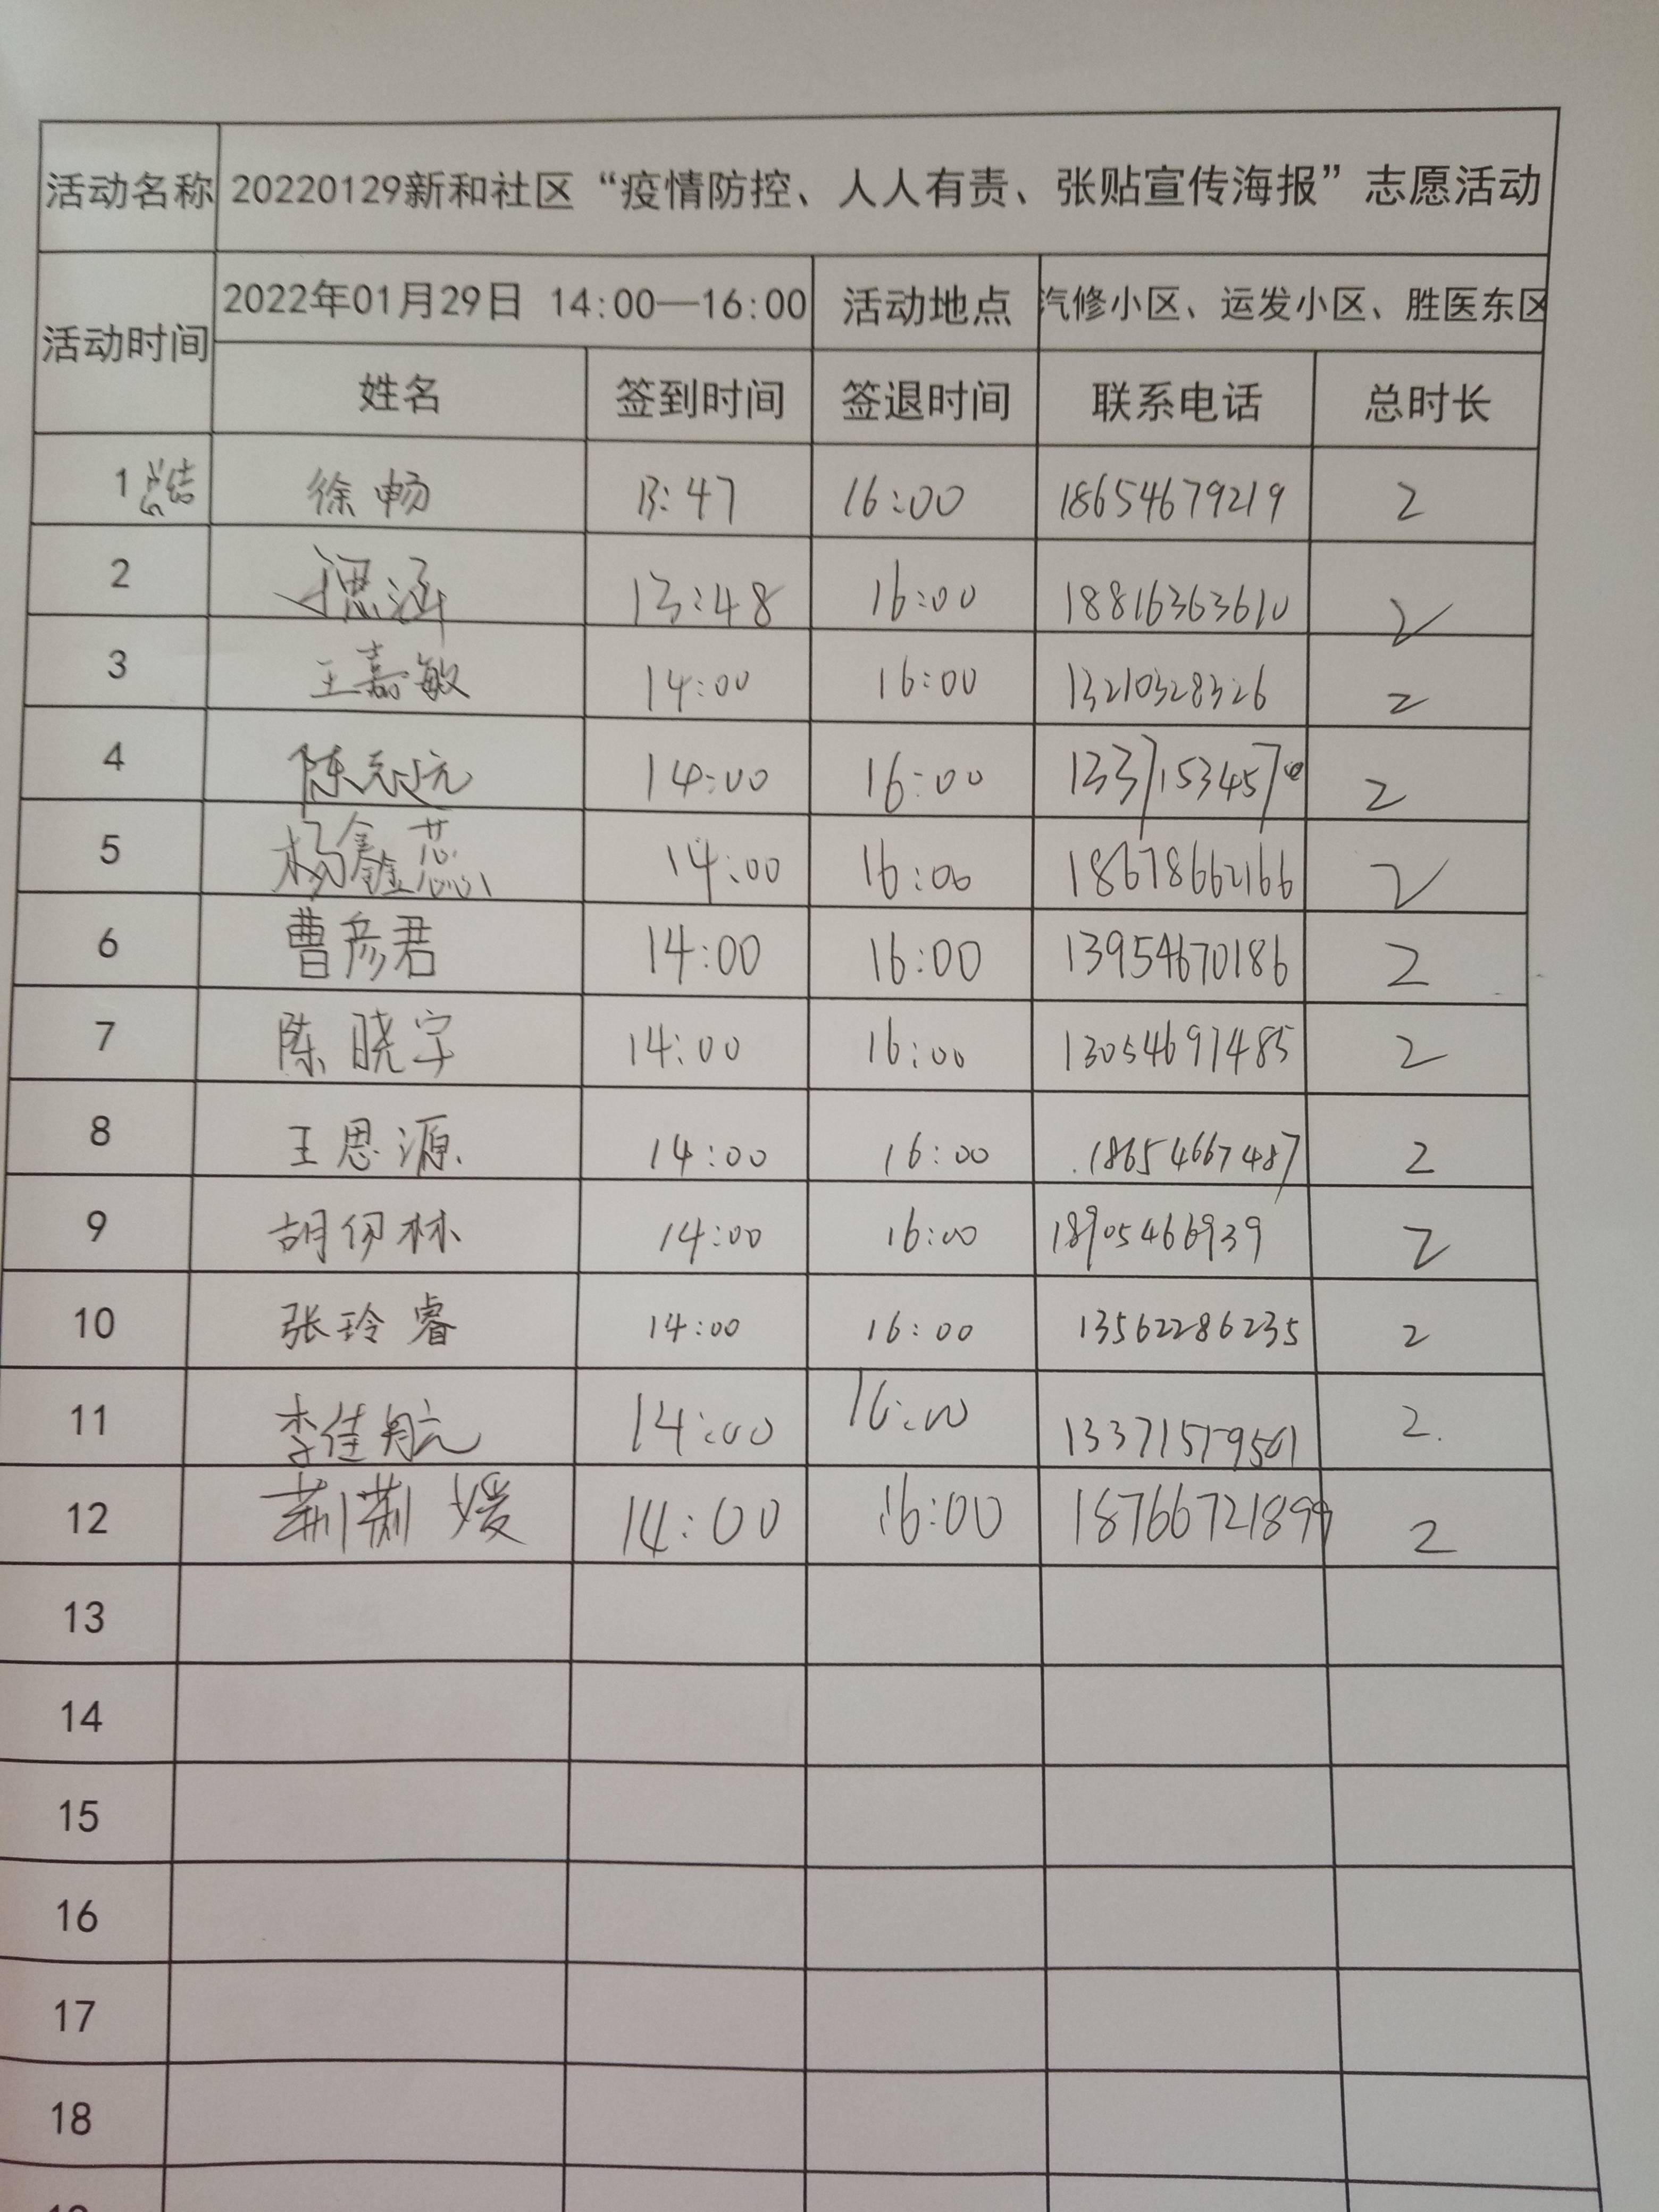 活动名称 20220129新和社区“疫情防控、人人有责、张贴宣传海报”志愿活动
活动时间 2022年01月29日 14:00—16:00 活动地点 汽修小区、运发小区、胜医东区
姓名 签到时间 签退时间 联系电话 总时长
1 总结 徐畅 13:47 16:00 18654679219 2
2 思涵 13:48 16:00 18816363610 2
3 王嘉敏 14:00 16:00 13210328326 2
4 陈志远 14:00 16:00 2
5 杨鑫蕊 14:00 16:00 18678662166 2
6 曹彦君 14:00 16:00 13954670186 2
7 陈晓宇 14:00 16:00 13054697485 2
8 王思源 14:00 16:00 18654667487 2
9 胡伊林 14:00 16:00 18905466939 2
10 张玲睿 14:00 16:00 13562286235 2
11 李佳航 14:00 16:00 2
12 荆荆媛 14:00 16:00 18766721899 2
13
14
15
16
17
18